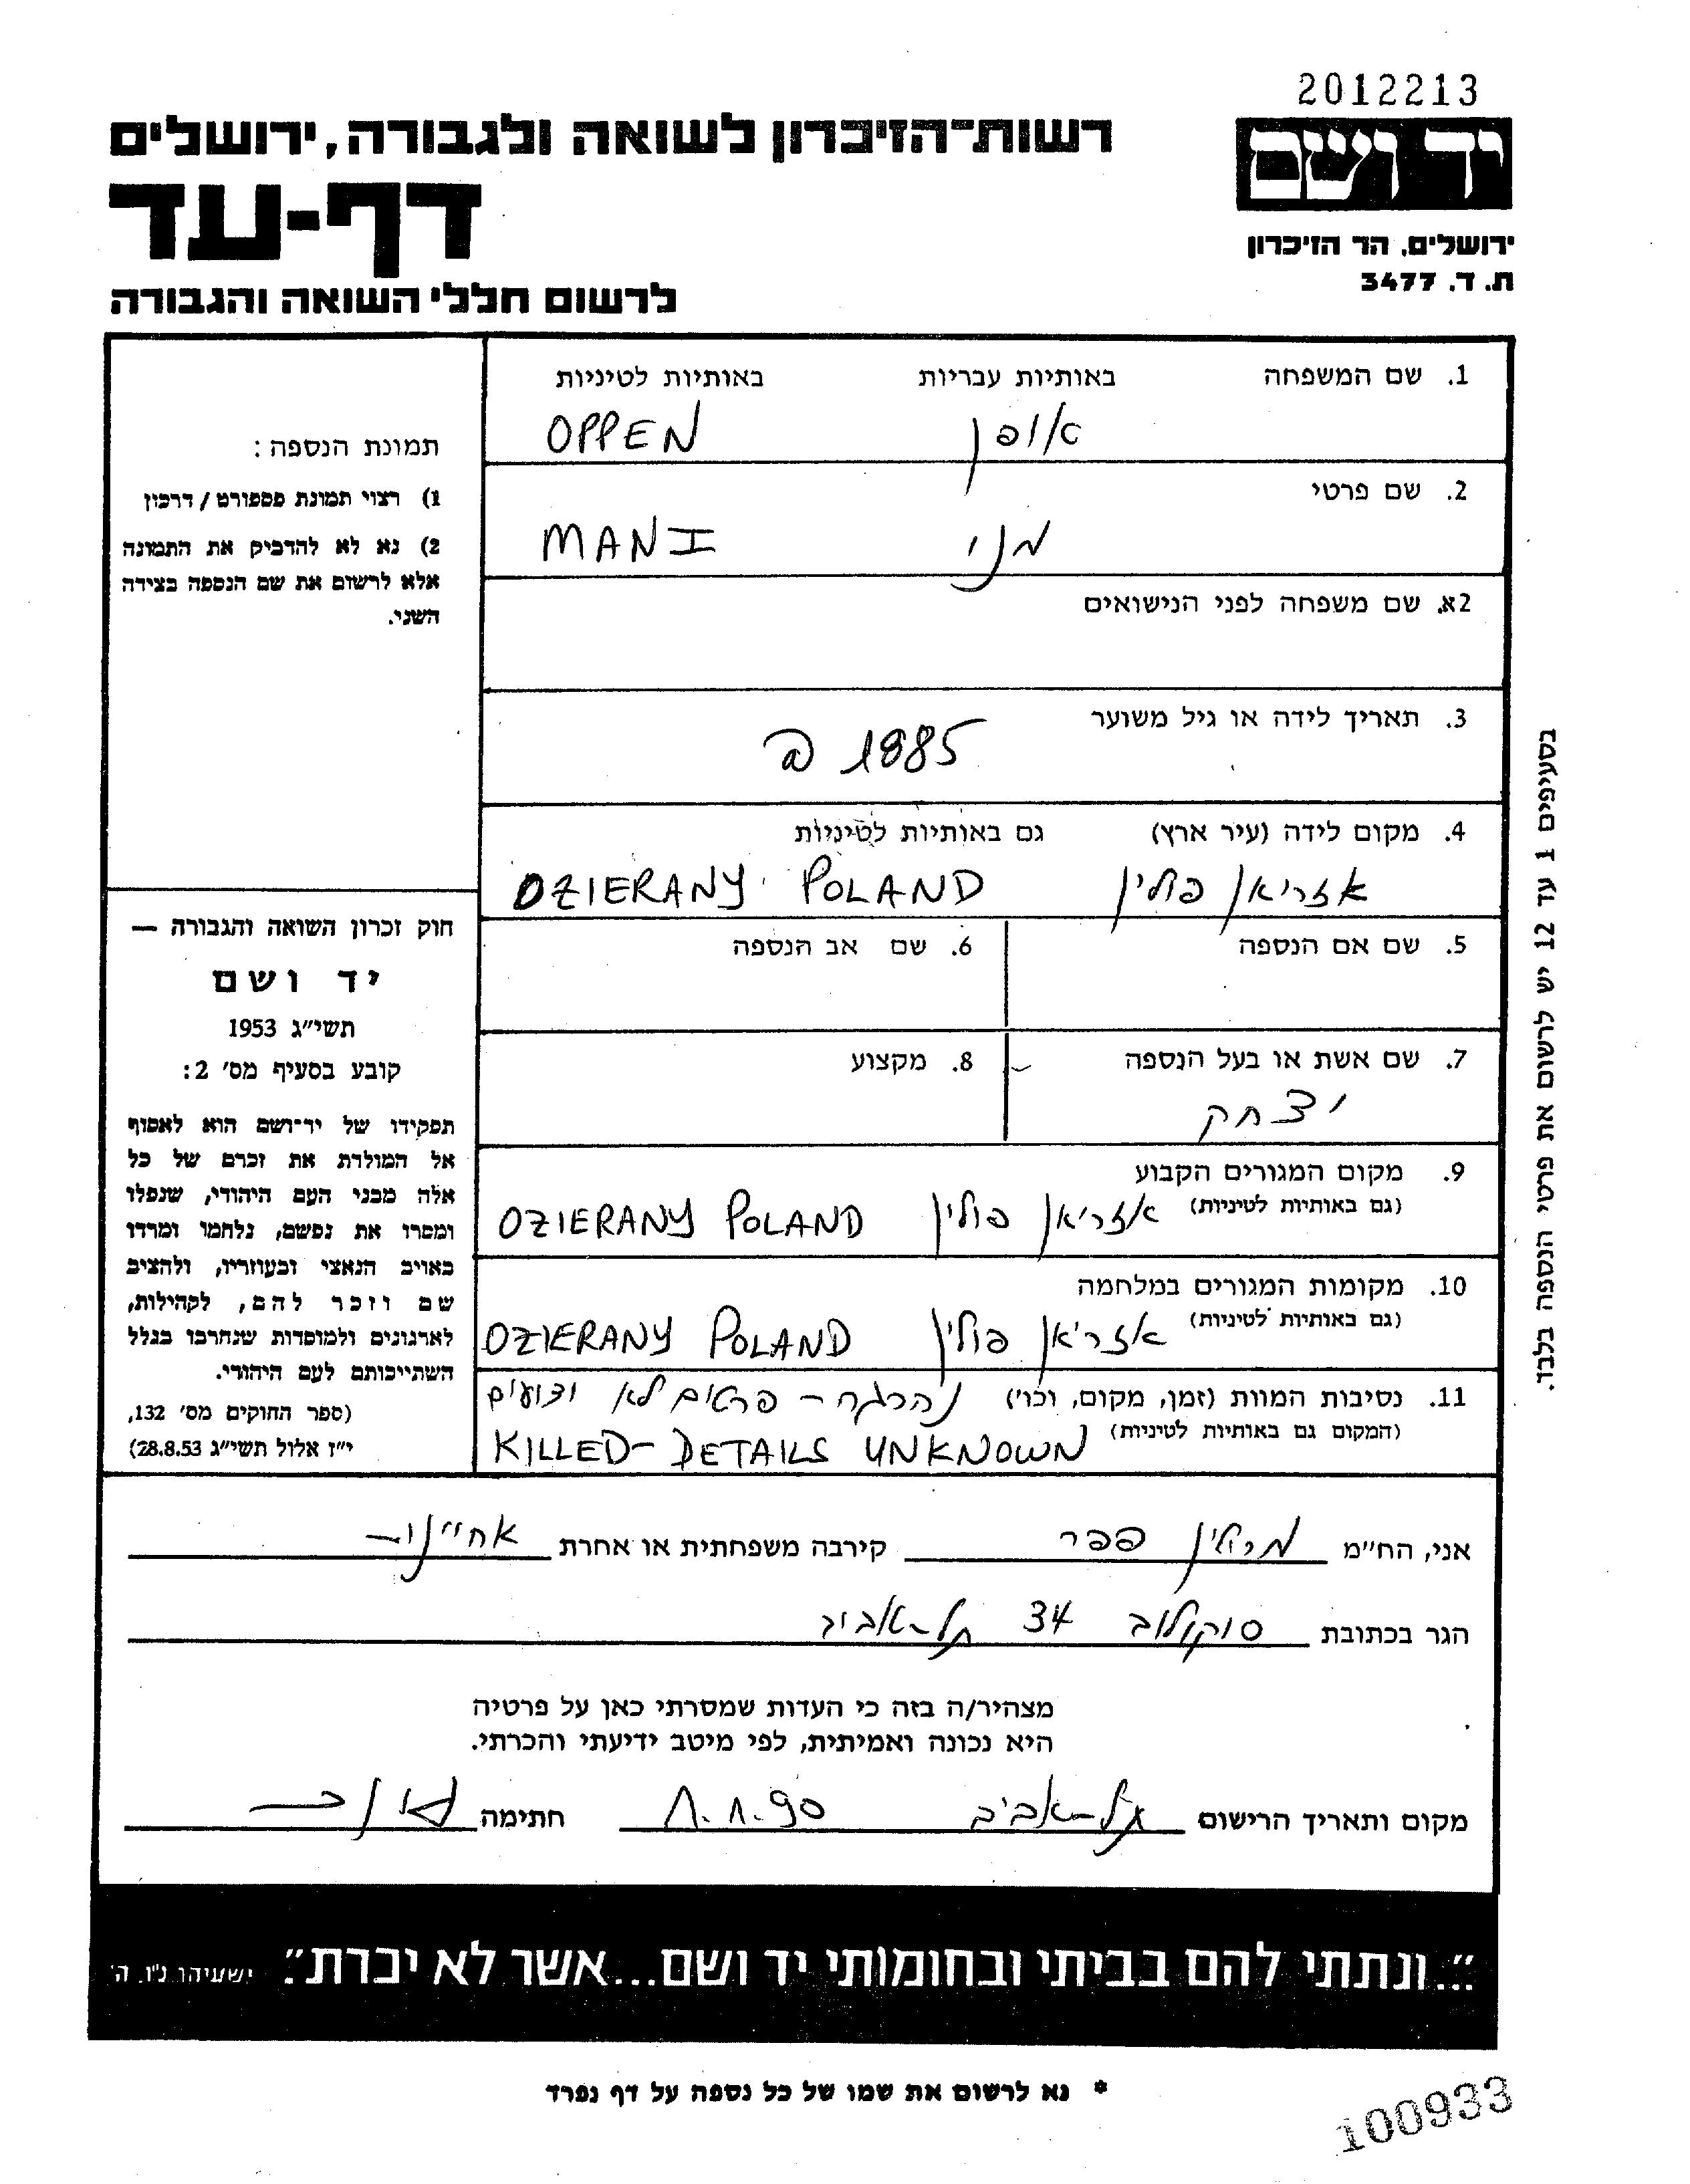 2012213
יד ושם
ירושלים, הר הזיכרון
ת. ד. 3477
רשות־הזיכרון לשואה ולגבורה, ירושלים
דף-עד
לרשום חללי השואה והגבורה
1. שם המשפחה באותיות עבריות באותיות לטיניות
אופן OPPEN
2. שם פרטי
מני MANI
2א. שם משפחה לפני הנישואים
3. תאריך לידה או גיל משוער
1885
4. מקום לידה (עיר ארץ) גם באותיות לטיניות
אזריאן פולין OZIERANY POLAND
5. שם אם הנספה 6. שם אב הנספה
7. שם אשת או בעל הנספה 8. מקצוע
יצחק
9. מקום המגורים הקבוע
(גם באותיות לטיניות) אזריאן פולין OZIERANY POLAND
10. מקומות המגורים במלחמה
(גם באותיות לטיניות) אזריאן פולין OZIERANY POLAND
11. נסיבות המוות (זמן, מקום, וכו') נהרגה - פרטים לא ידועים
(המקום גם באותיות לטיניות) KILLED - DETAILS UNKNOWN
תמונת הנספה:
1) רצוי תמונת פספורט / דרכון
2) נא לא להדביק את התמונה
אלא לרשום את שם הנספה בצידה
השני.
חוק זכרון השואה והגבורה —
יד ושם
תשי"ג 1953
קובע בסעיף מס' 2:
תפקידו של יד־ושם הוא לאסוף
אל המולדת את זכרם של כל
אלה מבני העם היהודי, שנפלו
ומסרו את נפשם, נלחמו ומרדו
באויב הנאצי ובעוזריו, ולהציב
שם וזכר להם, לקהילות,
לארגונים ולמוסדות שנחרבו בגלל
השתייכותם לעם היהודי.
(ספר החוקים מס' 132,
י"ז אלול תשי"ג 28.8.53)
בסעיפים 1 עד 12 יש לרשום את פרטי הנספה בלבד.
אני, הח"מ מרלין פפר קירבה משפחתית או אחרת אחיינו
הגר בכתובת סוקולוב 34 תל-אביב
מצהיר/ה בזה כי העדות שמסרתי כאן על פרטיה
היא נכונה ואמיתית, לפי מיטב ידיעתי והכרתי.
מקום ותאריך הרישום תל-אביב 8.8.90 חתימה
"...ונתתי להם בביתי ובחומותי יד ושם...אשר לא יכרת". ישעיהו נ"ו, ה'
* נא לרשום את שמו של כל נספה על דף נפרד
100933